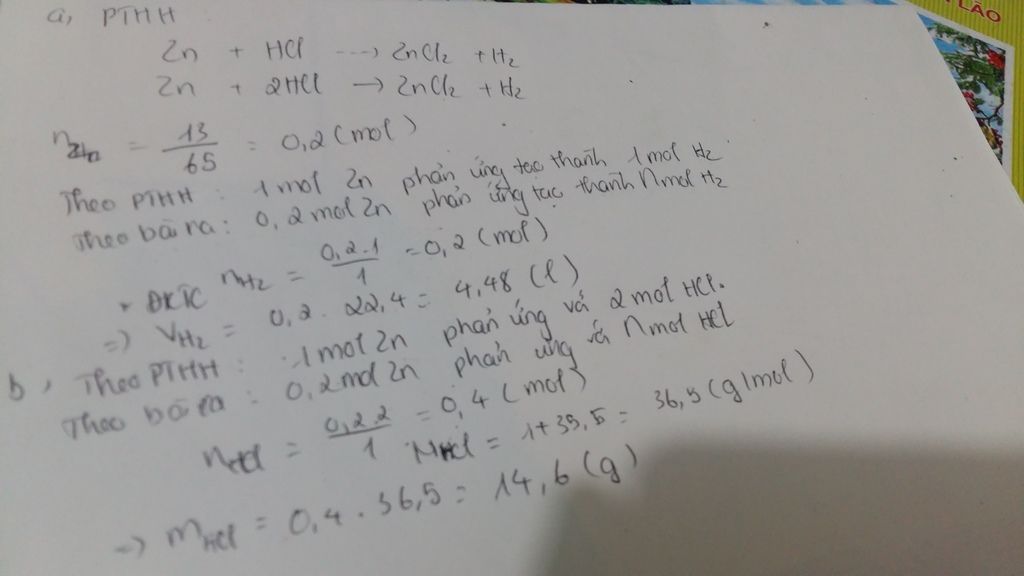 LÃO
a, PTHH
Zn + HCl ---> ZnCl₂ + H₂
Zn + 2HCl → ZnCl₂ + H₂
nZn = 13/65 = 0,2 (mol)
Theo PTHH : 1 mol Zn phản ứng tạo thành 1 mol H₂
Theo bài ra : 0,2 mol Zn phản ứng tạo thành n mol H₂
nH₂ = 0,2.1/1 = 0,2 (mol)
+ ĐKTC
=> VH₂ = 0,2 . 22,4 = 4,48 (l)
b, Theo PTHH : 1 mol Zn phản ứng với 2 mol HCl.
Theo bài ra : 0,2 mol Zn phản ứng với n mol HCl
nHCl = 0,2.2/1 = 0,4 (mol) MHCl = 1+35,5 = 36,5 (g/mol)
=> mHCl = 0,4 . 36,5 = 14,6 (g)